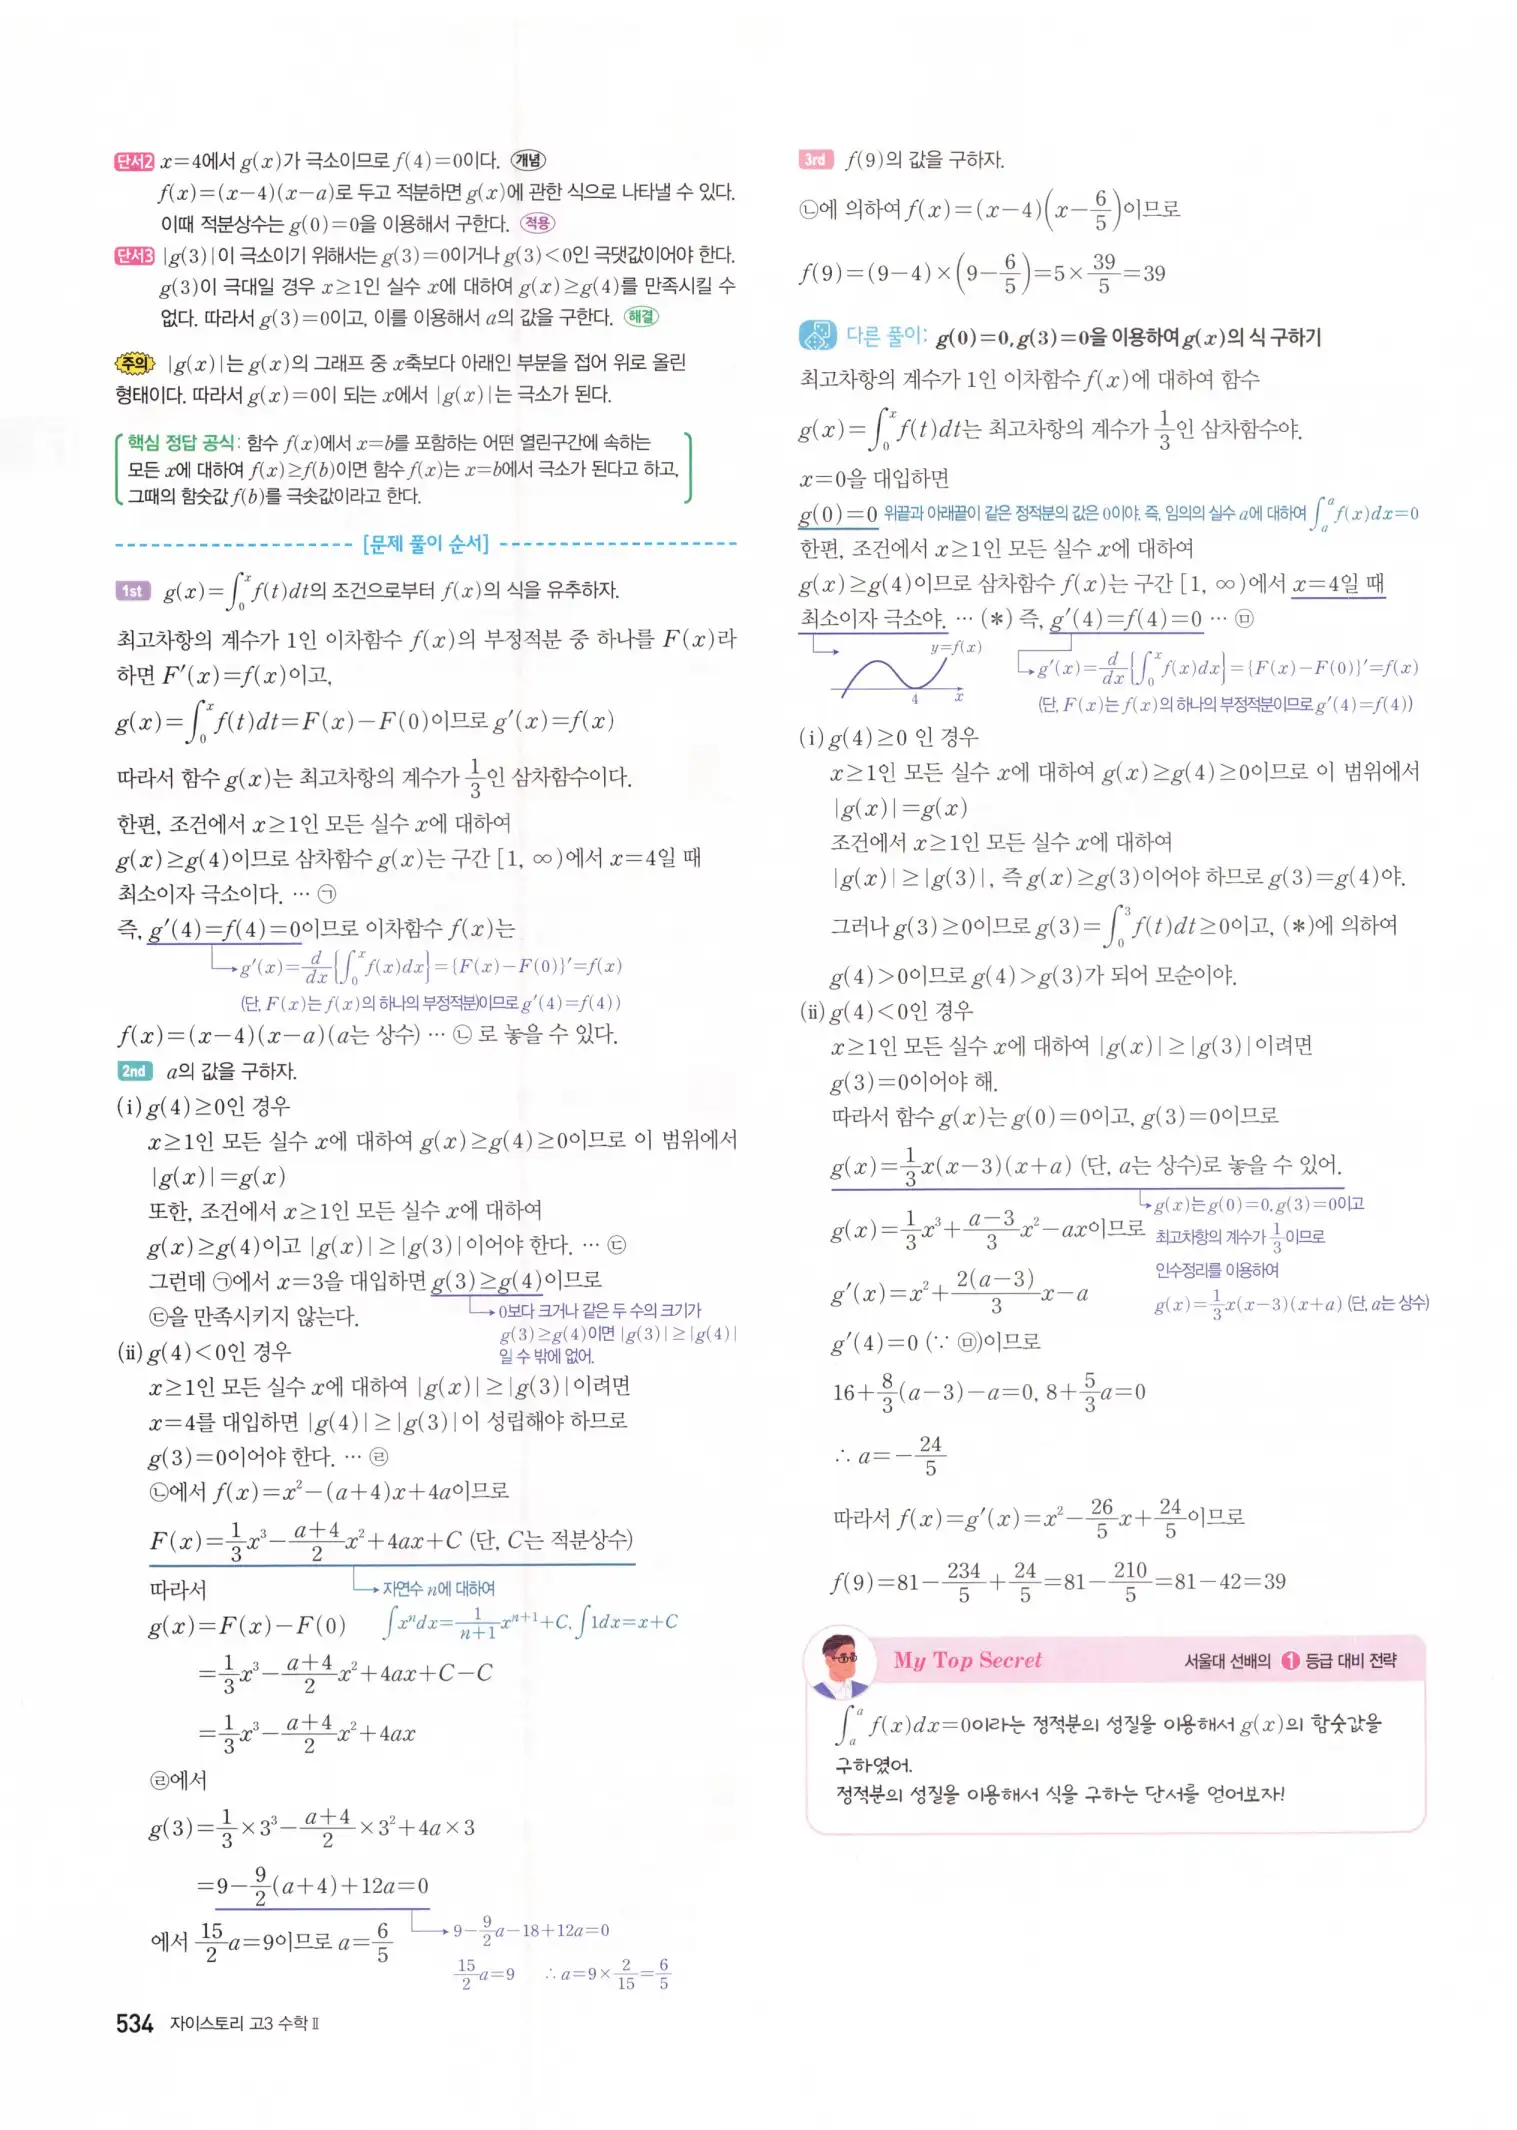 단서2 x=4에서 g(x)가 극소이므로 f(4)=0이다. 개념
f(x)=(x-4)(x-a)로 두고 적분하면 g(x)에 관한 식으로 나타낼 수 있다.
이때 적분상수는 g(0)=0을 이용해서 구한다. 적용
단서3 |g(3)|이 극소이기 위해서는 g(3)=0이거나 g(3)<0인 극댓값이어야 한다.
g(3)이 극대일 경우 x≥1인 실수 x에 대하여 g(x)≥g(4)를 만족시킬 수
없다. 따라서 g(3)=0이고, 이를 이용해서 a의 값을 구한다. 해결
주의 |g(x)|는 g(x)의 그래프 중 x축보다 아래인 부분을 접어 위로 올린
형태이다. 따라서 g(x)=0이 되는 x에서 |g(x)|는 극소가 된다.
핵심 정답 공식: 함수 f(x)에서 x=b를 포함하는 어떤 열린구간에 속하는
모든 x에 대하여 f(x)≥f(b)이면 함수 f(x)는 x=b에서 극소가 된다고 하고,
그때의 함숫값 f(b)를 극솟값이라고 한다.
[문제 풀이 순서]
1st g(x)=∫₀ˣ f(t)dt의 조건으로부터 f(x)의 식을 유추하자.
최고차항의 계수가 1인 이차함수 f(x)의 부정적분 중 하나를 F(x)라
하면 F′(x)=f(x)이고,
g(x)=∫₀ˣ f(t)dt=F(x)-F(0)이므로 g′(x)=f(x)
따라서 함수 g(x)는 최고차항의 계수가 1/3인 삼차함수이다.
한편, 조건에서 x≥1인 모든 실수 x에 대하여
g(x)≥g(4)이므로 삼차함수 g(x)는 구간 [1, ∞)에서 x=4일 때
최소이자 극소이다. … ㉠
즉, g′(4)=f(4)=0이므로 이차함수 f(x)는
g′(x)=d/dx{∫₀ˣ f(x)dx}={F(x)-F(0)}′=f(x)
(단, F(x)는 f(x)의 하나의 부정적분)이므로 g′(4)=f(4))
f(x)=(x-4)(x-a)(a는 상수) … ㉡ 로 놓을 수 있다.
2nd a의 값을 구하자.
(ⅰ) g(4)≥0인 경우
x≥1인 모든 실수 x에 대하여 g(x)≥g(4)≥0이므로 이 범위에서
|g(x)|=g(x)
또한, 조건에서 x≥1인 모든 실수 x에 대하여
g(x)≥g(4)이고 |g(x)|≥|g(3)|이어야 한다. … ㉢
그런데 ㉠에서 x=3을 대입하면 g(3)≥g(4)이므로
㉢을 만족시키지 않는다.
0보다 크거나 같은 두 수의 크기가
g(3)≥g(4)이면 |g(3)|≥|g(4)|
일 수 밖에 없어.
(ⅱ) g(4)<0인 경우
x≥1인 모든 실수 x에 대하여 |g(x)|≥|g(3)|이려면
x=4를 대입하면 |g(4)|≥|g(3)|이 성립해야 하므로
g(3)=0이어야 한다. … ㉣
㉡에서 f(x)=x²-(a+4)x+4a이므로
F(x)=1/3x³-(a+4)/2x²+4ax+C (단, C는 적분상수)
따라서
자연수 n에 대하여
g(x)=F(x)-F(0)
∫xⁿdx=1/(n+1)xⁿ⁺¹+C, ∫1dx=x+C
=1/3x³-(a+4)/2x²+4ax+C-C
=1/3x³-(a+4)/2x²+4ax
㉣에서
g(3)=1/3×3³-(a+4)/2×3²+4a×3
=9-9/2(a+4)+12a=0
에서 15/2a=9이므로 a=6/5
9-9/2a-18+12a=0
15/2a=9 ∴ a=9×2/15=6/5
534 자이스토리 고3 수학Ⅱ
3rd f(9)의 값을 구하자.
㉡에 의하여 f(x)=(x-4)(x-6/5)이므로
f(9)=(9-4)×(9-6/5)=5×39/5=39
다른 풀이: g(0)=0, g(3)=0을 이용하여 g(x)의 식 구하기
최고차항의 계수가 1인 이차함수 f(x)에 대하여 함수
g(x)=∫₀ˣ f(t)dt는 최고차항의 계수가 1/3인 삼차함수야.
x=0을 대입하면
g(0)=0 위끝과 아래끝이 같은 정적분의 값은 0이야. 즉, 임의의 실수 a에 대하여 ∫ₐᵃ f(x)dx=0
한편, 조건에서 x≥1인 모든 실수 x에 대하여
g(x)≥g(4)이므로 삼차함수 f(x)는 구간 [1, ∞)에서 x=4일 때
최소이자 극소야. … (*) 즉, g′(4)=f(4)=0 … ㉤
y=f(x)
4 x
g′(x)=d/dx{∫₀ˣ f(x)dx}={F(x)-F(0)}′=f(x)
(단, F(x)는 f(x)의 하나의 부정적분이므로 g′(4)=f(4))
(ⅰ) g(4)≥0 인 경우
x≥1인 모든 실수 x에 대하여 g(x)≥g(4)≥0이므로 이 범위에서
|g(x)|=g(x)
조건에서 x≥1인 모든 실수 x에 대하여
|g(x)|≥|g(3)|, 즉 g(x)≥g(3)이어야 하므로 g(3)=g(4)야.
그러나 g(3)≥0이므로 g(3)=∫₀³ f(t)dt≥0이고, (*)에 의하여
g(4)>0이므로 g(4)>g(3)가 되어 모순이야.
(ⅱ) g(4)<0인 경우
x≥1인 모든 실수 x에 대하여 |g(x)|≥|g(3)|이려면
g(3)=0이어야 해.
따라서 함수 g(x)는 g(0)=0이고, g(3)=0이므로
g(x)=1/3x(x-3)(x+a) (단, a는 상수)로 놓을 수 있어.
g(x)는 g(0)=0, g(3)=0이고
최고차항의 계수가 1/3이므로
인수정리를 이용하여
g(x)=1/3x(x-3)(x+a) (단, a는 상수)
g(x)=1/3x³+(a-3)/3x²-ax이므로
g′(x)=x²+2(a-3)/3x-a
g′(4)=0 (∵ ㉤)이므로
16+8/3(a-3)-a=0, 8+5/3a=0
∴ a=-24/5
따라서 f(x)=g′(x)=x²-26/5x+24/5이므로
f(9)=81-234/5+24/5=81-210/5=81-42=39
My Top Secret 서울대 선배의 1 등급 대비 전략
∫ₐᵃ f(x)dx=0이라는 정적분의 성질을 이용해서 g(x)의 함숫값을
구하였어.
정적분의 성질을 이용해서 식을 구하는 단서를 얻어보자!